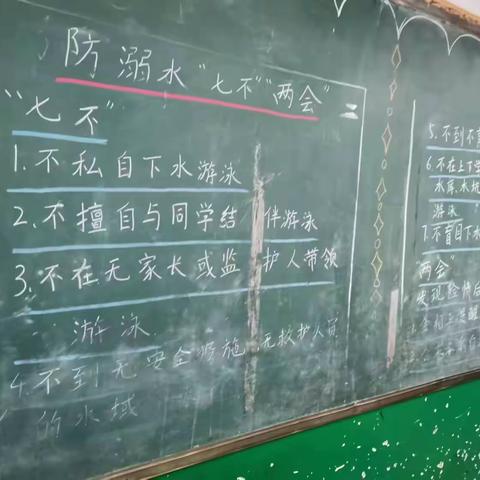 防溺水"七不""两会"
"七不"
1.不私自下水游泳
2.不擅自与同学结伴游泳
3.不在无家长或监护人带领
游泳
4.不到无安全设施、无救护人员
的水域
5.不到不
6.不在上下学
水库、水坑
游泳
7.不盲目下水
"两会"
发现险情后